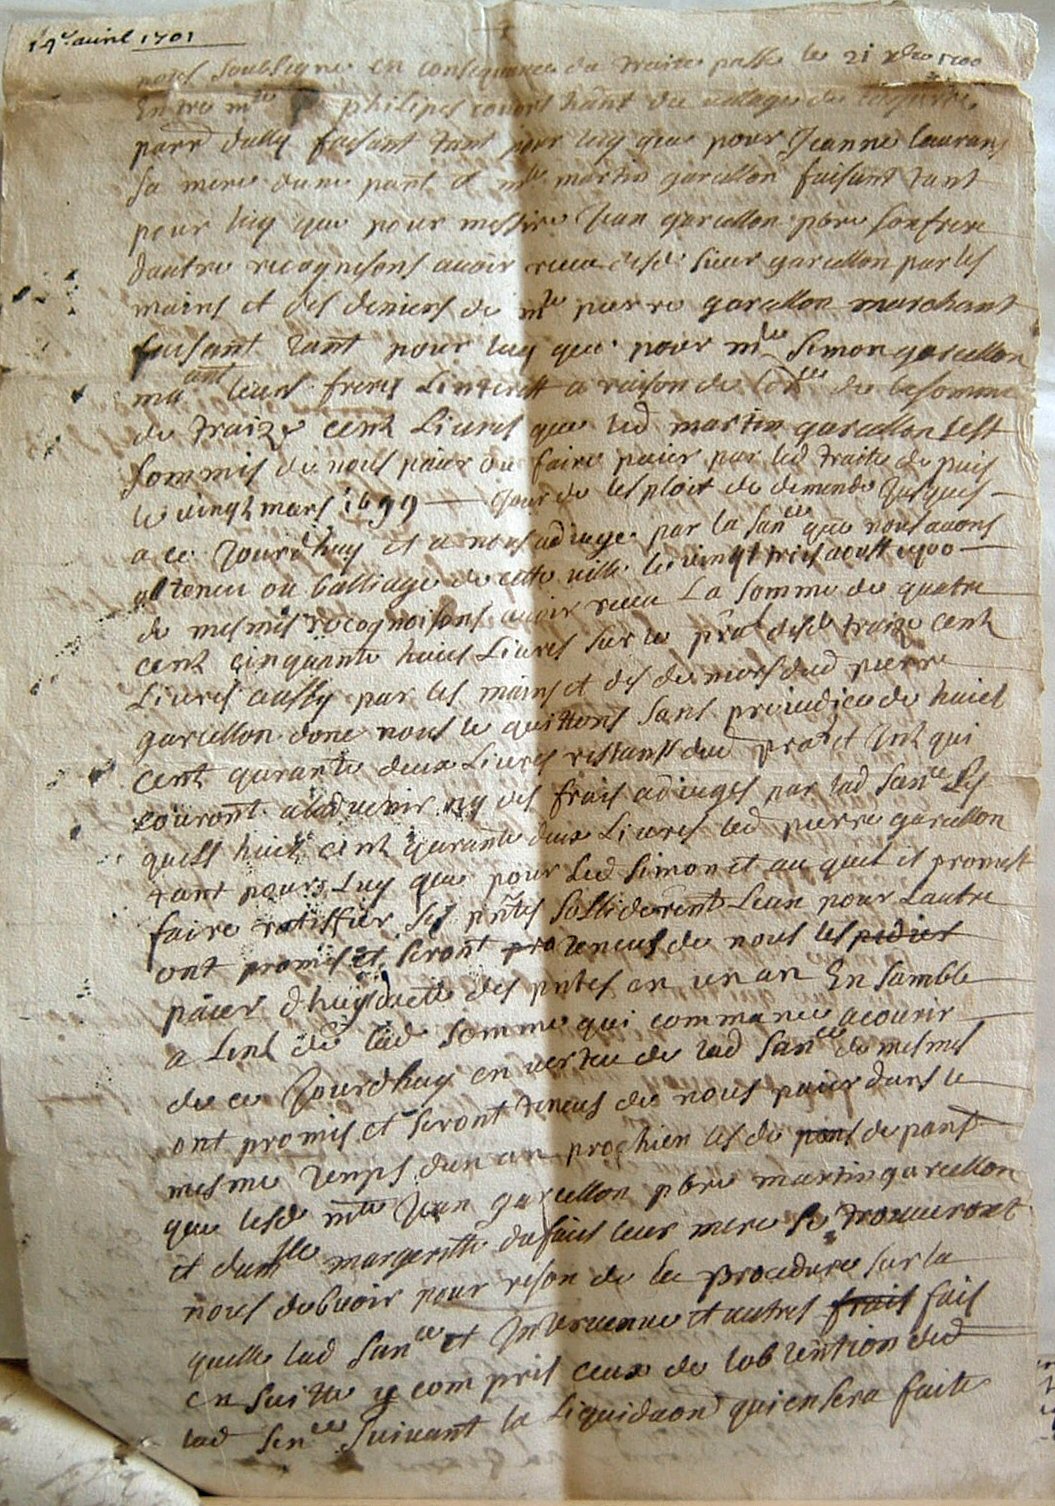 14e auril 1701
nous soubsigne en consequance du traite passe le 21 xbre 1700
Entre mre philipes hant du vilage de
parr dally faisant tant pour luy que pour Jeanne laurans
sa mere dune part et mre martin garcellon faisant tant
pour luy que pour messire Jean garcellon pbre son frere
dautre recognisons auoir receu desd sieur garcellon par les
mains et des deniers de mre pierre garcellon marchant
faisant tant pour luy que pour mre Simon garcellon
mar ant leurs freres Linterest a raison de de la somme
de traize cent Liures que led martin garcellon sest
sommis de nous paier ou faire paier par led traite de puis
le vingt mars 1699 — Jour de lesploit de demende Jusques
a ce Jourdhuy et a nous adiuge par la sance que nous auons
obteneu ou balliage de cette ville le vingt trois aoust 1700
de mesmes recognoisons auoir receu La somme de quatre
cent cinquante huict Liures sur le pral desd traize cent
Liures aussy par les mains et des deniers dud pierre
garcellon donc nous le quittons sans preiudice de huict
cent quarante deux Liures restants dud pral et Int qui
couront aladuenir ny des frais adiuges par lad sance Les
quels huict cent quarante deux Liures led pierre garcellon
tant pour Luy que pour Led simon et au quel il promest
faire ratiffier Ses pntes sollidерent Lun pour Lautre
ont promis et seront pro teneus de nous les pedies
paier dhuy datte des pntes en un an En samble
a Lint de lad somme qui commance acourir
de ce Jourdhuy en verteu de lad sance de mesmes
ont promis et seront teneus de nous paier dans le
mesme temps dun an prochien les de pans de pans
que lesd mre Jean garcellon pbre martin garcellon
et damlle margeritte dufaus leur mere se trouueront
nous debuoir pour reson de la procedure sur la
quelle lad sance et Interuenue et autres frais fais
en suitte y com pris ceux de lobtention ded
lad sence suiuant la Liquidaon qui en sera faite